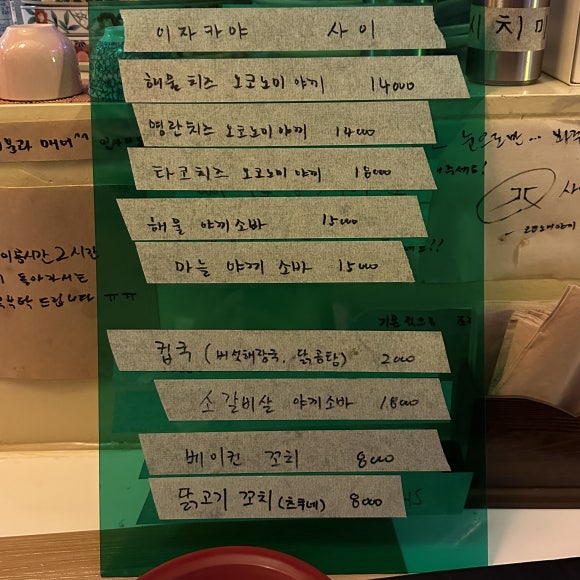 이자카야 사이
해물치즈 오코노미야끼 14000
명란치즈 오코노미야끼 14000
타코치즈 오코노미야끼 18000
해물 야끼소바 15000
마늘 야끼소바 15000
컵국 (버섯해장국, 닭곰탕) 2000
소갈비살 야끼소바 18000
베이컨 꼬치 8000
닭고기 꼬치 (츠쿠네) 8000
시치미
눈으로만...
이용시간 2시간
돌아가서는
부탁 드립니다 ㅠㅠ